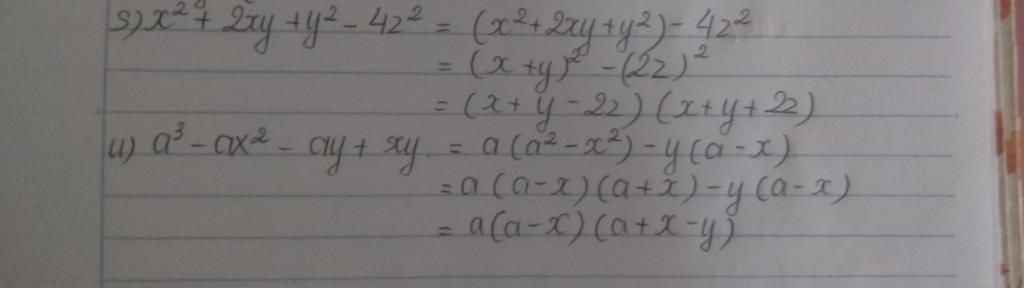 s) x² + 2xy + y² - 4z² = (x² + 2xy + y²) - 4z²
= (x + y)² - (2z)²
= (x + y - 2z) (x + y + 2z)
u) a³ - ax² - ay + xy = a(a² - x²) - y(a - x)
= a(a - x)(a + x) - y(a - x)
= a(a - x)(a + x - y)